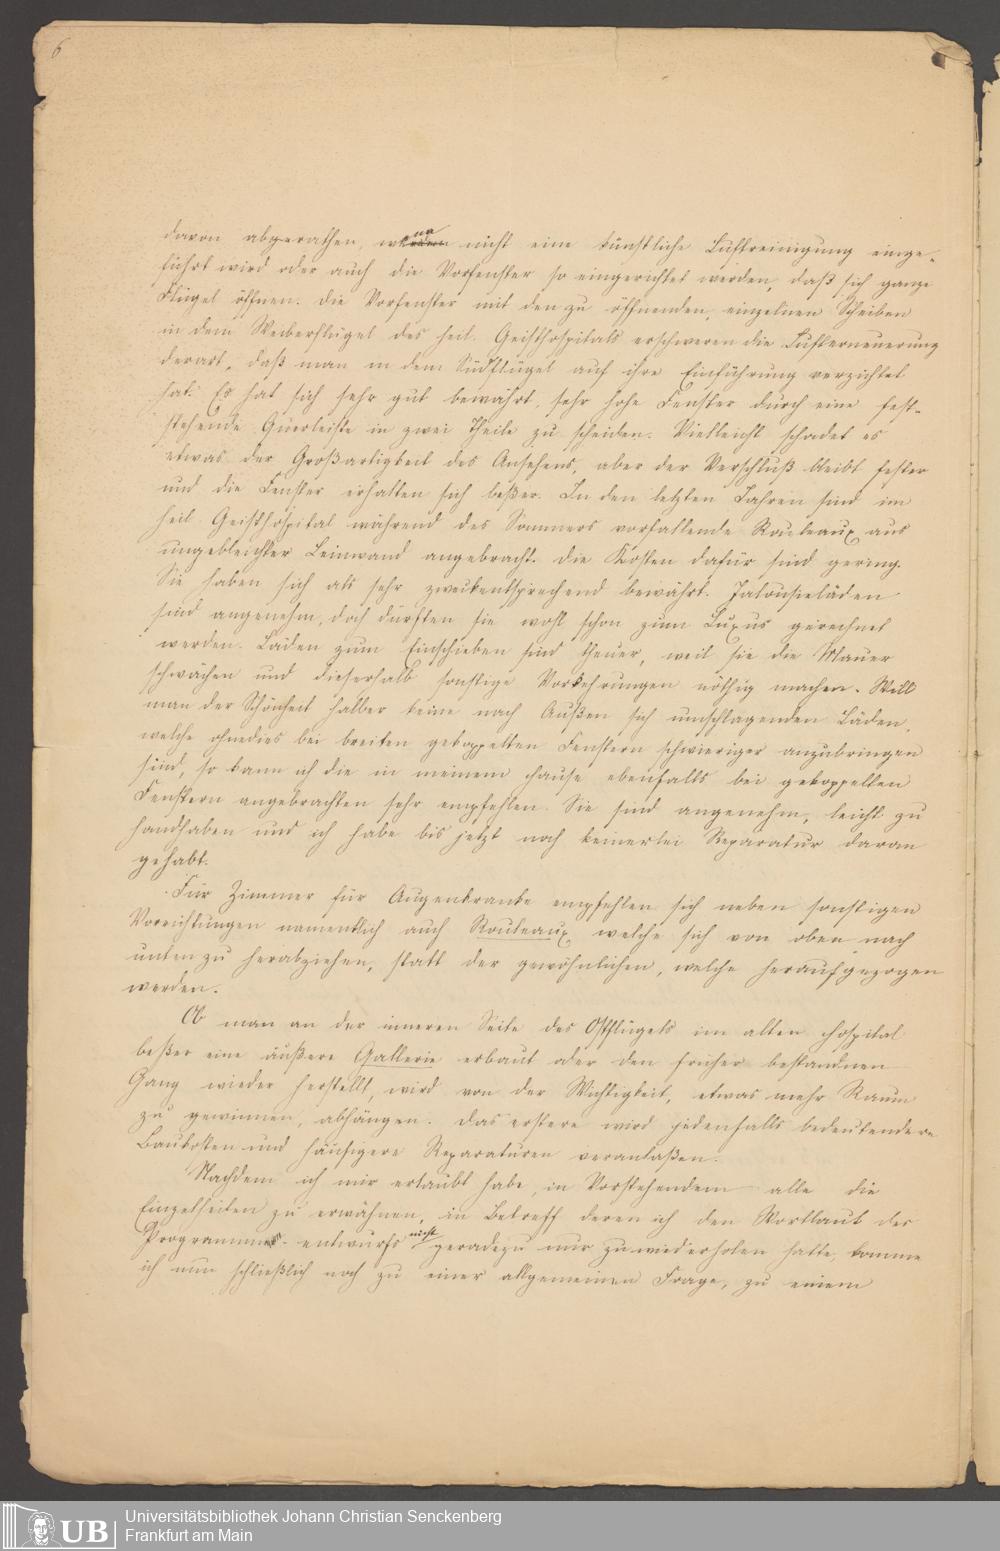 6
davon abgerathen, wenn nicht eine künstliche Luftreinigung einge-
führt wird oder auch die Vorfenster so eingerichtet werden, daß sich ganze
Flügel öffnen. Die Vorfenster mit den zu öffnenden, einzelnen Scheiben
in dem Weiberflügel des heil. Geisthospitals erschweren die Lufterneuerung
derart, daß man in dem Südflügel auf ihre Einführung verzichtet
hat. Es hat sich sehr gut bewährt, sehr hohe Fenster durch eine fest-
stehende Querleiste in zwei Theile zu scheiden. Vielleicht schadet es
etwas der Großartigkeit des Ansehens, aber der Verschluß bleibt fester
und die Fenster erhalten sich beßer. In den letzten Jahren sind im
heil. Geisthospital während des Sommers vorfallende Rouleaux aus
ungebleichter Leinwand angebracht. Die Kosten dafür sind gering.
Sie haben sich als sehr zweckentsprechend bewährt. Jalousieläden
sind angenehm, doch dürften sie wohl schon zum Luxus gerechnet
werden. Läden zum Einschieben sind theuer, weil sie die Mauer
schwächen und dieserhalb sonstige Vorkehrungen nöthig machen. Will
man der Schönheit halber keine nach Außen sich umschlagenden Läden,
welche ohnedies bei breiten gekoppelten Fenstern schwieriger anzubringen
sind, so kann ich die in meinem Hause ebenfalls bei gekoppelten
Fenstern angebrachten sehr empfehlen. Sie sind angenehm, leicht zu
handhaben und ich habe bis jetzt noch keinerlei Reparatur daran
gehabt.
Für Zimmer für Augenkranke empfehlen sich neben sonstigen
Vorrichtungen namentlich auch Rouleaux, welche sich von oben nach
unten zu herabziehen, statt der gewöhnlichen, welche heraufgezogen
werden.
Ob man an der inneren Seite des Ostflügels im alten Hospital
beßer eine äußere Gallerie erbaut oder den früher bestandnen
Gang wieder herstellt, wird von der Wichtigkeit, etwas mehr Raum
zu gewinnen, abhängen. Das erstere wird jedenfalls bedeutendere
Baukosten und häufigere Reparaturen veranlaßen.
Nachdem ich mir erlaubt habe, in Vorstehendem alle die
Einzelheiten zu erwähnen, in Betreff deren ich den Wortlaut des
Programmes-entwurfs nicht geradezu nur zu wiederholen hatte, komme
ich nun schließlich noch zu einer allgemeinen Frage, zu einem
UB
Universitätsbibliothek Johann Christian Senckenberg
Frankfurt am Main